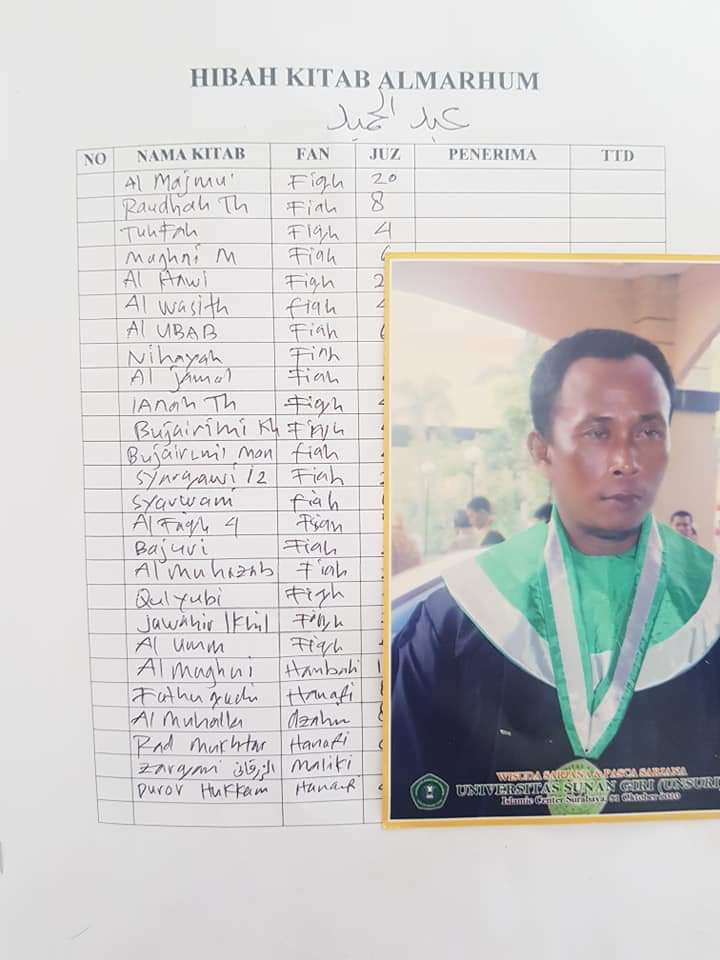 HIBAH KITAB ALMARHUM
عبد الحميد
NO NAMA KITAB FAN JUZ PENERIMA TTD
Al Majmu' Fiqh 20
Raudhah Th Fiqh 8
Tuhfah Fiqh 4
Mughni M Fiqh
Al Hawi Fiqh 2
Al Wasith Fiqh
Al UBAB Fiqh
Nihayah Fiqh
Al Jamal Fiqh
IANah Th Fiqh
Bujairimi Kh Fiqh
Bujairimi Man Fiqh
Syarqawi 12 Fiqh
Syarwani Fiqh
Al Fiqh 4
Bajuri Fiqh
Al Muhazab Fiqh
Qulyubi Fiqh
Jawahir Fiqh
Al Umm Fiqh
Al Mughni Hanbali 1
Fathu Hanafi
Al Muhalla dzahir
Rad Mukhtar Hanafi
Zarqani الزرقاني Maliki
Duror Hukkam Hanafi
WISUDA SARJANA & PASCA SARJANA
UNIVERSITAS SUNAN GIRI (UNSURI)
Islamic Center Surabaya, 31 Oktober 2010